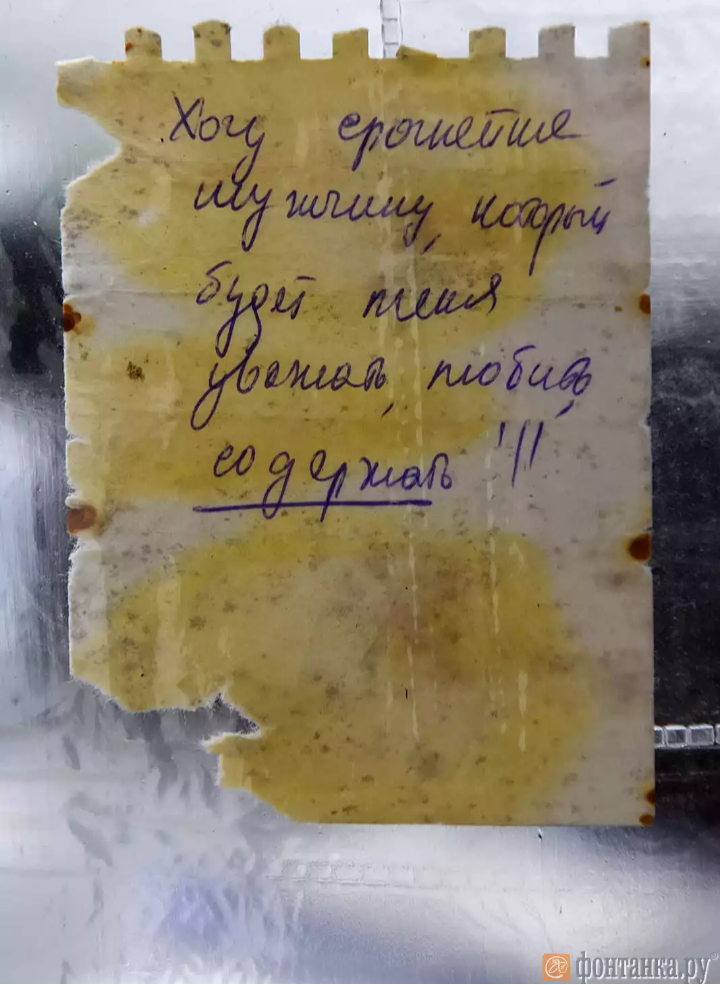 Хочу срочнейше
мужчину, который
будет меня
уважать, любить,
содержать!!!
фонтанка.ру